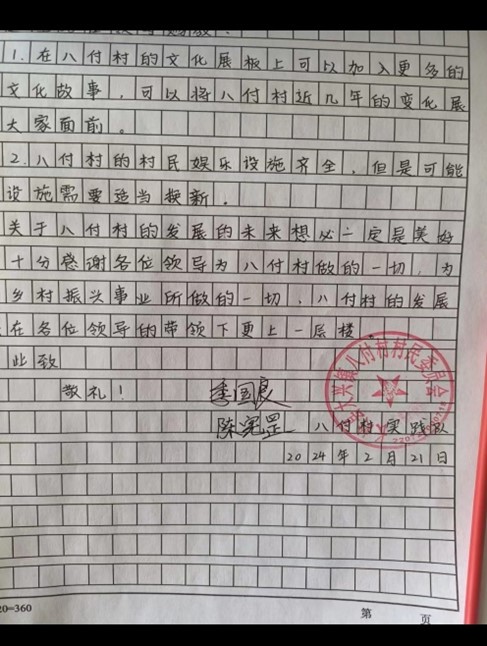 1.在八付村的文化展板上可以加入更多的
文化故事，可以将八付村近几年的变化展
大家面前。
2.八付村的村民娱乐设施齐全，但是可能
设施需要适当换新。
关于八付村的发展的未来想必一定是美好
十分感谢各位领导为八付村做的一切，为
乡村振兴事业所做的一切，八付村的发展
在各位领导的带领下更上一层楼
此致
敬礼！
季国良
陈宪罡 八付村实践队
2024年2月21日
八付村村民委员会
20=360
第 页